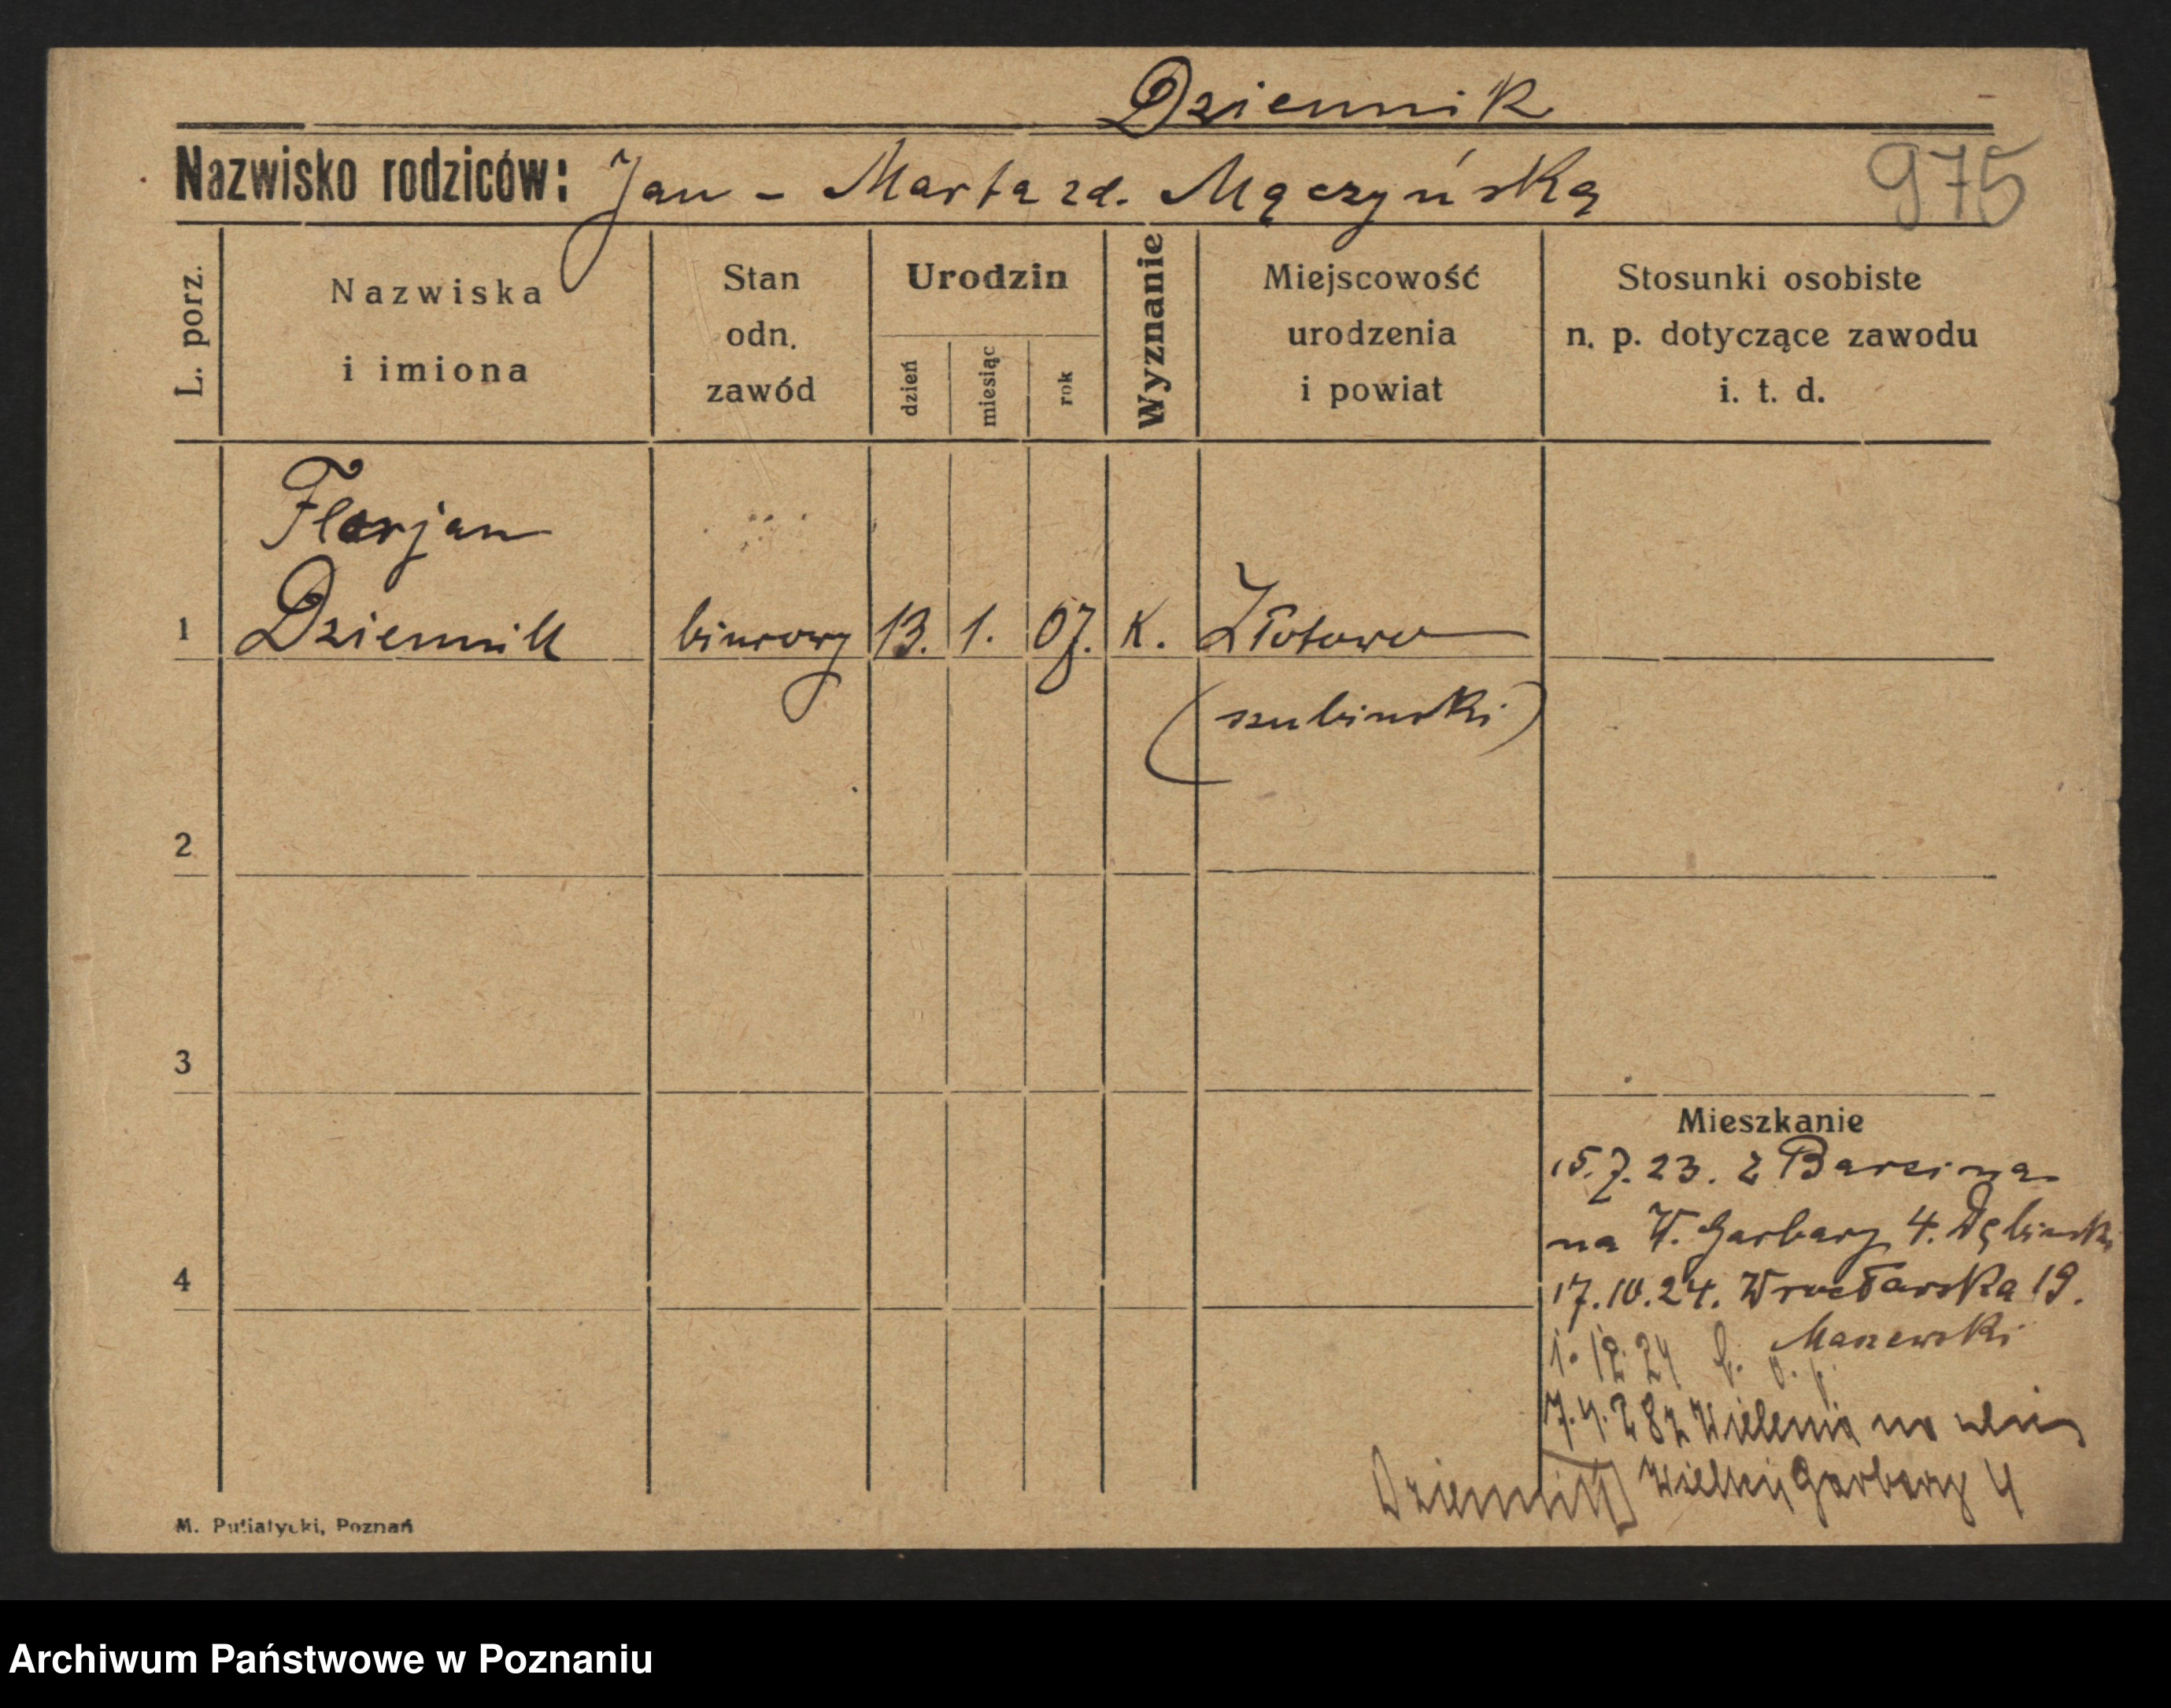 Dziennik
Nazwisko rodziców: Jan - Marta zd. Mączyńską
975
L. porz.
Nazwiska i imiona
Stan odn. zawód
Urodzin
dzień
miesiąc
rok
Wyznanie
Miejscowość urodzenia i powiat
Stosunki osobiste n. p. dotyczące zawodu i. t. d.
Florjan
1 Dziennik biurowy 13. 1. 07. K. Złotowo
(szubinski)
2
3
Mieszkanie
15.7.23. z Barcina
na W. Garbary 4. Dębinski
4
17.10.24. Wrocławska 19.
Maszewski
1. 12. 24
7.4.28 z Wielenia na
Dziennik Wielkie Garbary 4
M. Putiatycki, Poznań
Archiwum Państwowe w Poznaniu